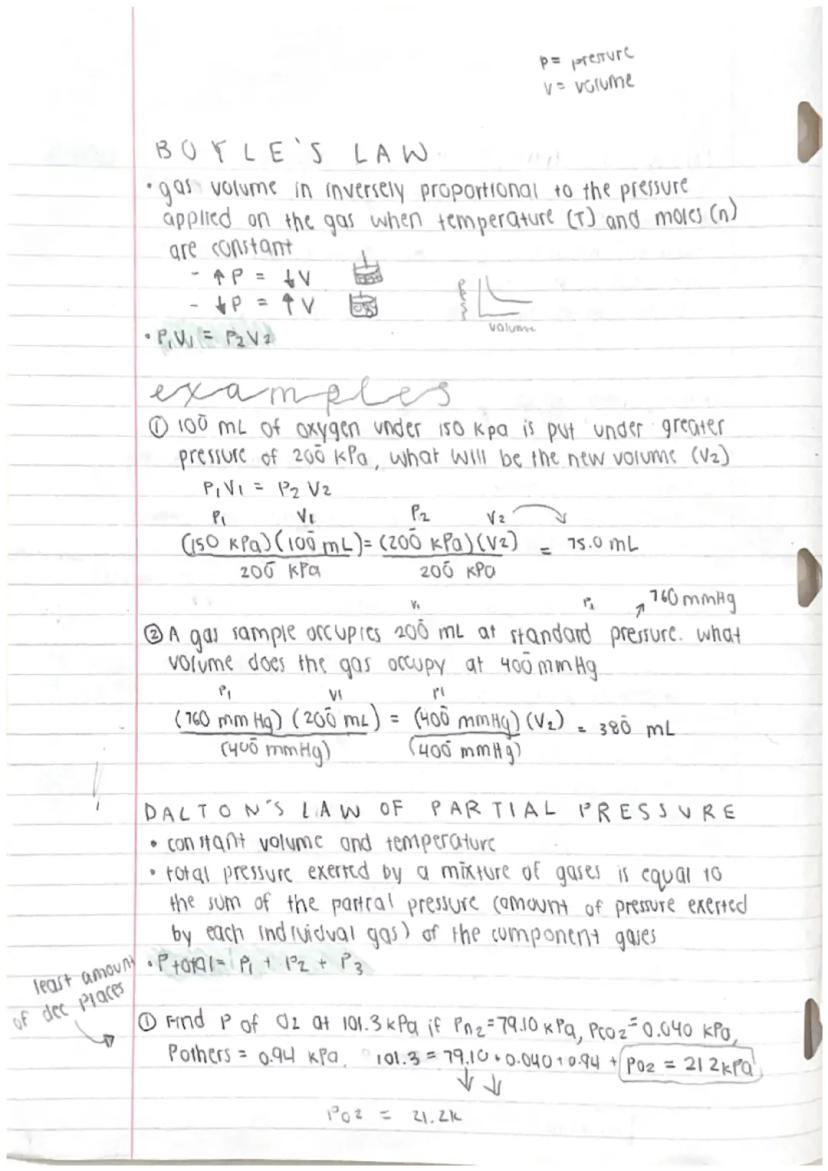 P = pressure
V = volume
BOYLE'S LAW
• gas volume in inversely proportional to the pressure
applied on the gas when temperature (T) and moles (n)
are constant
- ↑P = ↓V
- ↓P = ↑V
volume
• P₁V₁ = P₂V₂
examples
① 100̄ mL of oxygen under 150 kpa is put under greater
pressure of 200̄ kPa, what will be the new volume (V₂)
P₁V₁ = P₂V₂
P₁ V₁ P₂ V₂
(150 kPa)(100̄ mL) = (200̄ kPa)(V₂) = 75.0 mL
200̄ kPa 200̄ kPa
V₁ P₁ 760 mmHg
② A gas sample occupies 200̄ mL at standard pressure. what
volume does the gas occupy at 400̄ mmHg
P₁ V₁ P₁
(760 mmHg)(200̄ mL) = (400̄ mmHg)(V₂) = 380̄ mL
(400̄ mmHg) (400̄ mmHg)
DALTON'S LAW OF PARTIAL PRESSURE
• constant volume and temperature
• total pressure exerted by a mixture of gases is equal to
the sum of the partial pressure (amount of pressure exerted
by each individual gas) of the component gases
• Ptotal = P₁ + P₂ + P₃
least amount
of dec places
① Find P of O₂ at 101.3 kPa if Pn₂ = 79.10 kPa, Pco₂ = 0.040 kPa,
Pothers = 0.94 kPa. 101.3 = 79.10 + 0.040 + 0.94 + Po₂ = 21.2 kPa
Po₂ = 21.2k